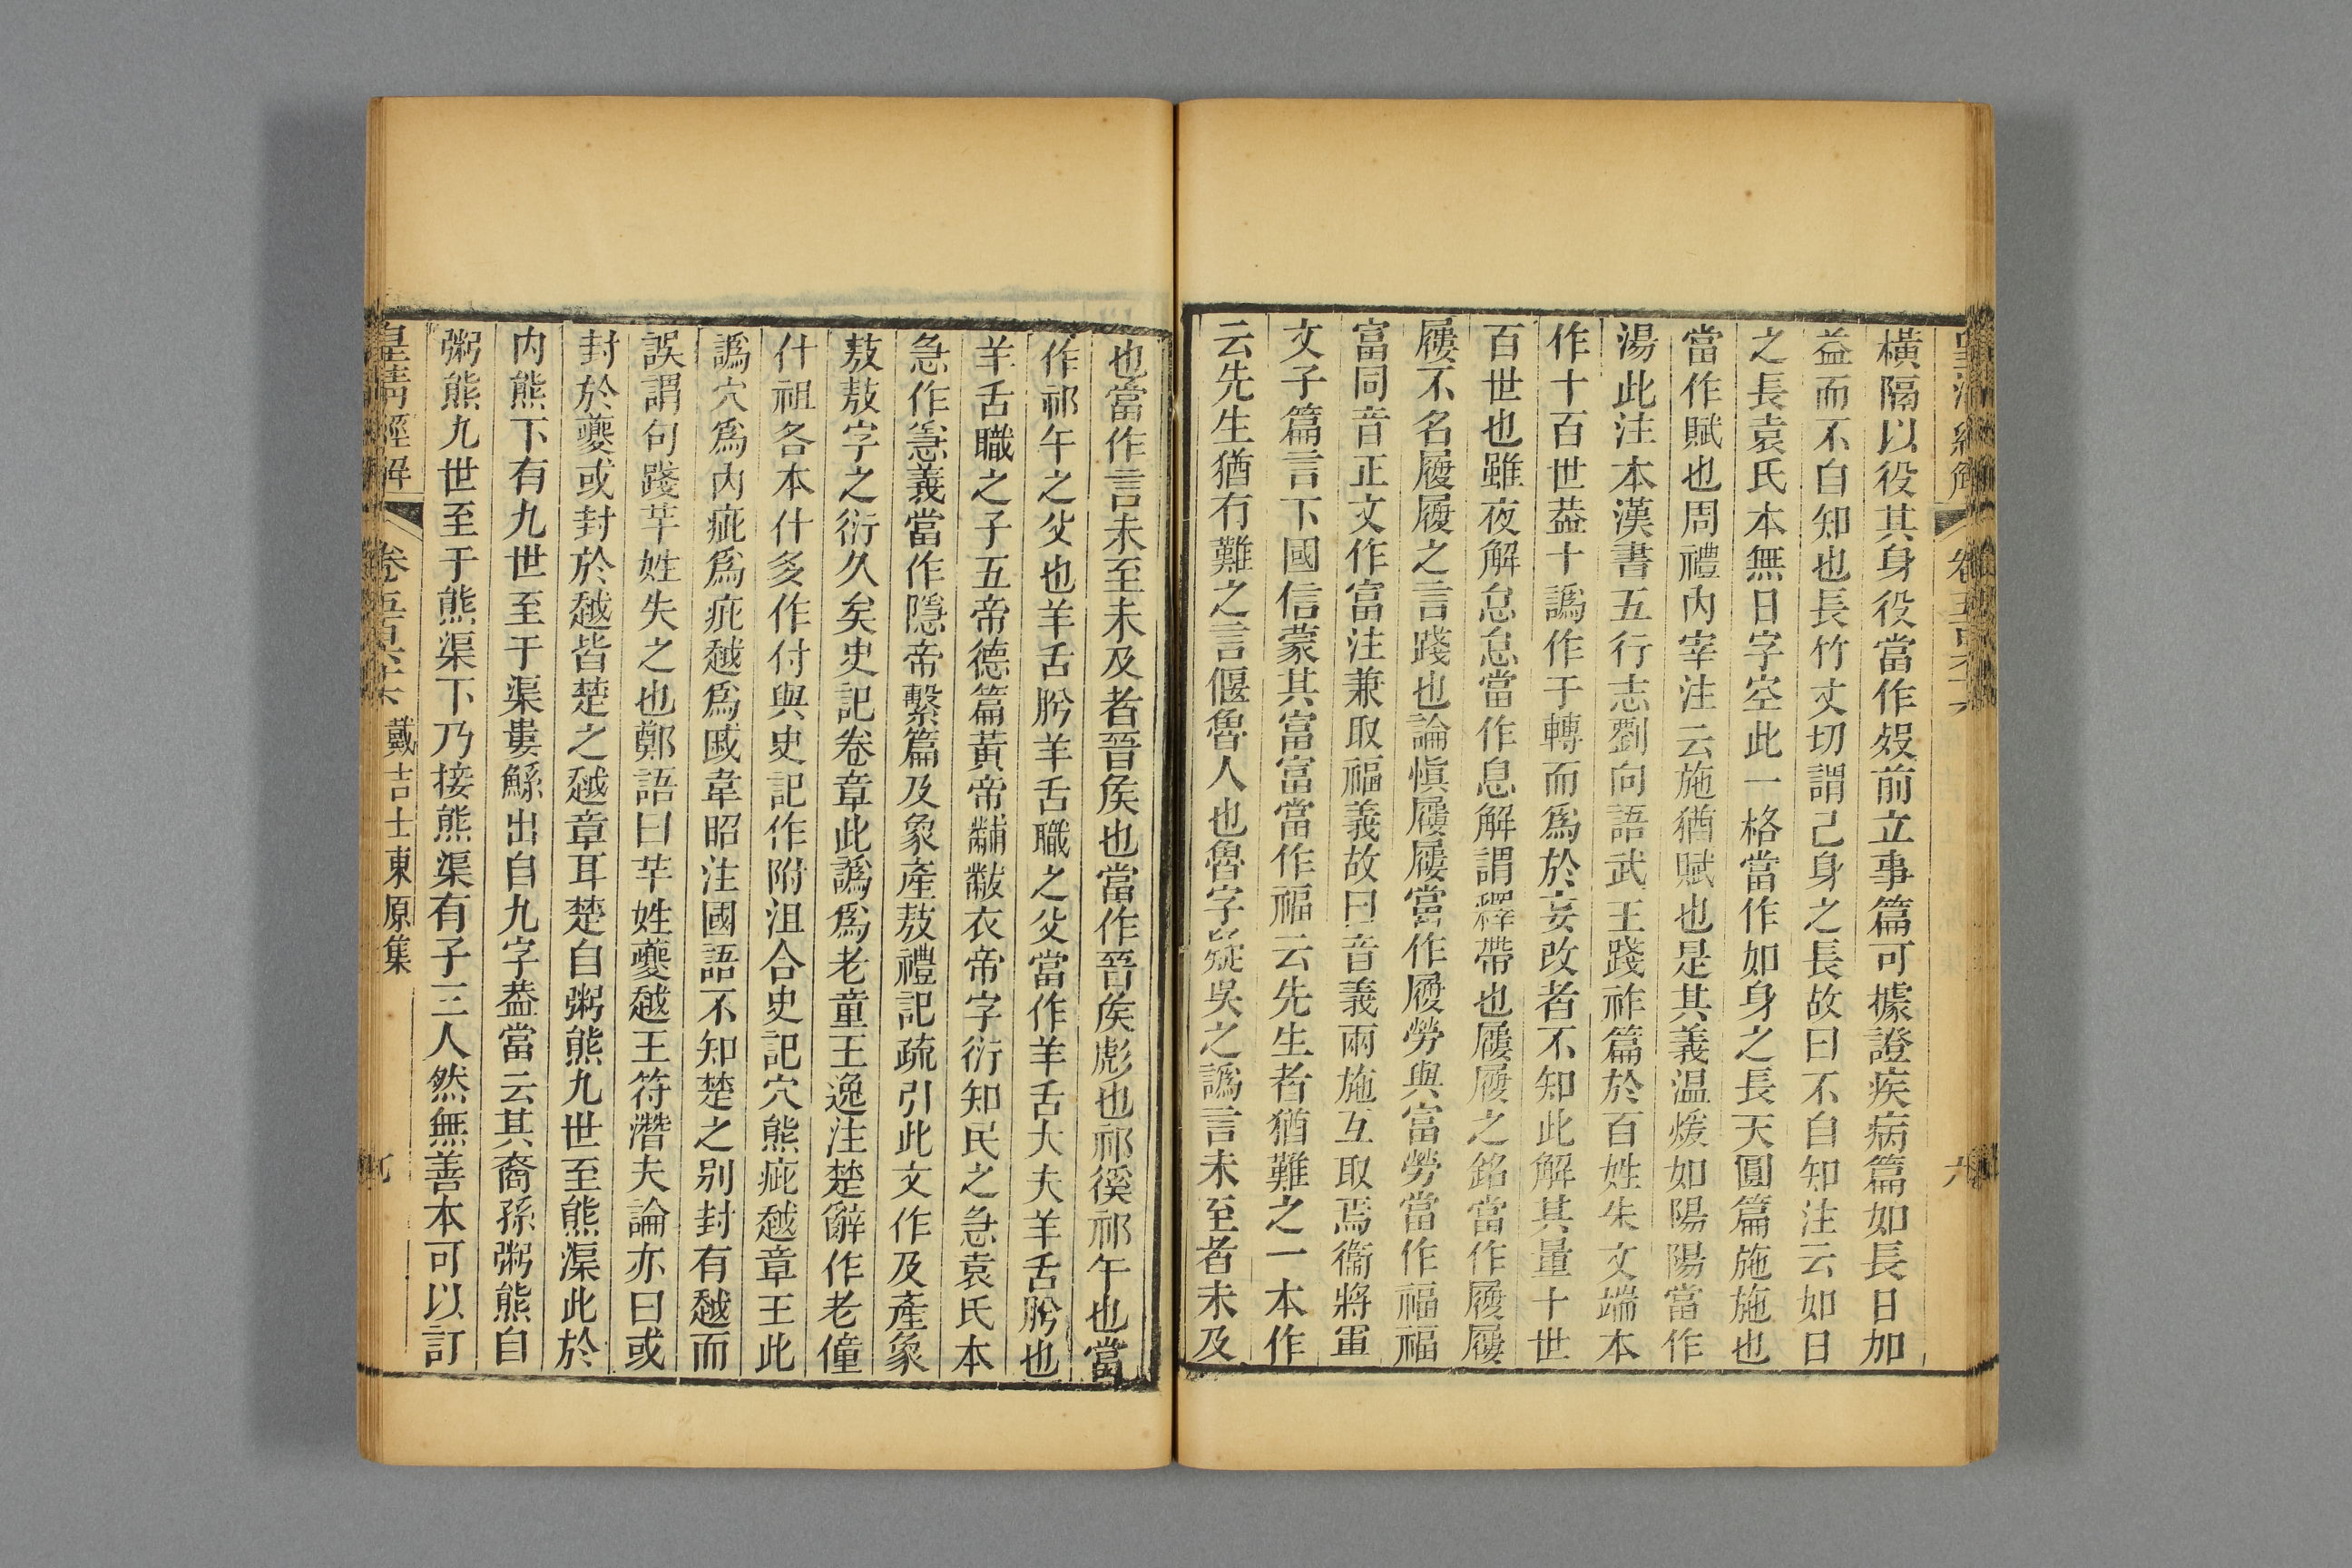 橫隔以役其身役當作歿前立事篇可據證疾病篇如長日加
益而不自知也長竹丈切謂己身之長故曰不自知注云如日
之長袁氏本無日字空此一格當作如身之長天圓篇施施也
當作賦也周禮內宰注云施猶賦也是其義温煖如陽陽當作
湯此注本漢書五行志劉向語武王踐祚篇於百姓朱文端本
作十百世葢十譌作于轉而爲於妄改者不知此解其量十世
百世也雖夜解怠怠當作息解謂釋帶也屨履之銘當作履屨
屨不名履履之言踐也論愼屨屨當作履勞與富勞當作福福
富同音正文作富注兼取福義故曰音義兩施互取焉衞將軍
文子篇言下國信蒙其富富當作福云先生者猶難之一本作
云先生猶冇難之言偃魯人也魯字疑吳之譌言未至者未及
也當作言未至未及者晉矦也當作晉矦彪也祁徯祁午也當
作祁午之父也羊舌肹羊舌職之父當作羊舌大夫羊舌肹也
羊舌職之子五帝德篇黃帝黼黻衣帝字衍知民之急袁氏本
急作㥯義當作隱帝繫篇及象產敖禮記疏引此文作及產象
敖敖字之衍久矣史記卷章此譌爲老童王逸注楚辭作老僮
什祖各本什多作付與史記作附沮合史記穴熊疵越章王此
譌穴爲內疵爲疪越爲戚韋昭注國語不知楚之别封有越而
誤謂句踐芊姓失之也鄭語曰芊姓夔越王符潛夫論亦曰或
封於夔或封於越皆楚之越章耳楚自粥熊九世至熊渠此於
内熊下有九世至于渠婁鯀出自九字葢當云其裔孫粥熊自
粥熊九世至于熊渠下乃接熊渠有子三人然無善本可以訂
皇淸經解 卷五百六十六 戴吉士東原集